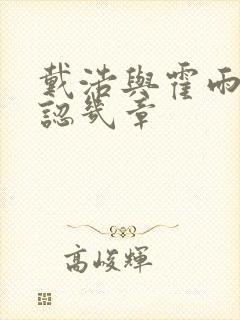 戴浩與霍雨
認幾章
高峻輝